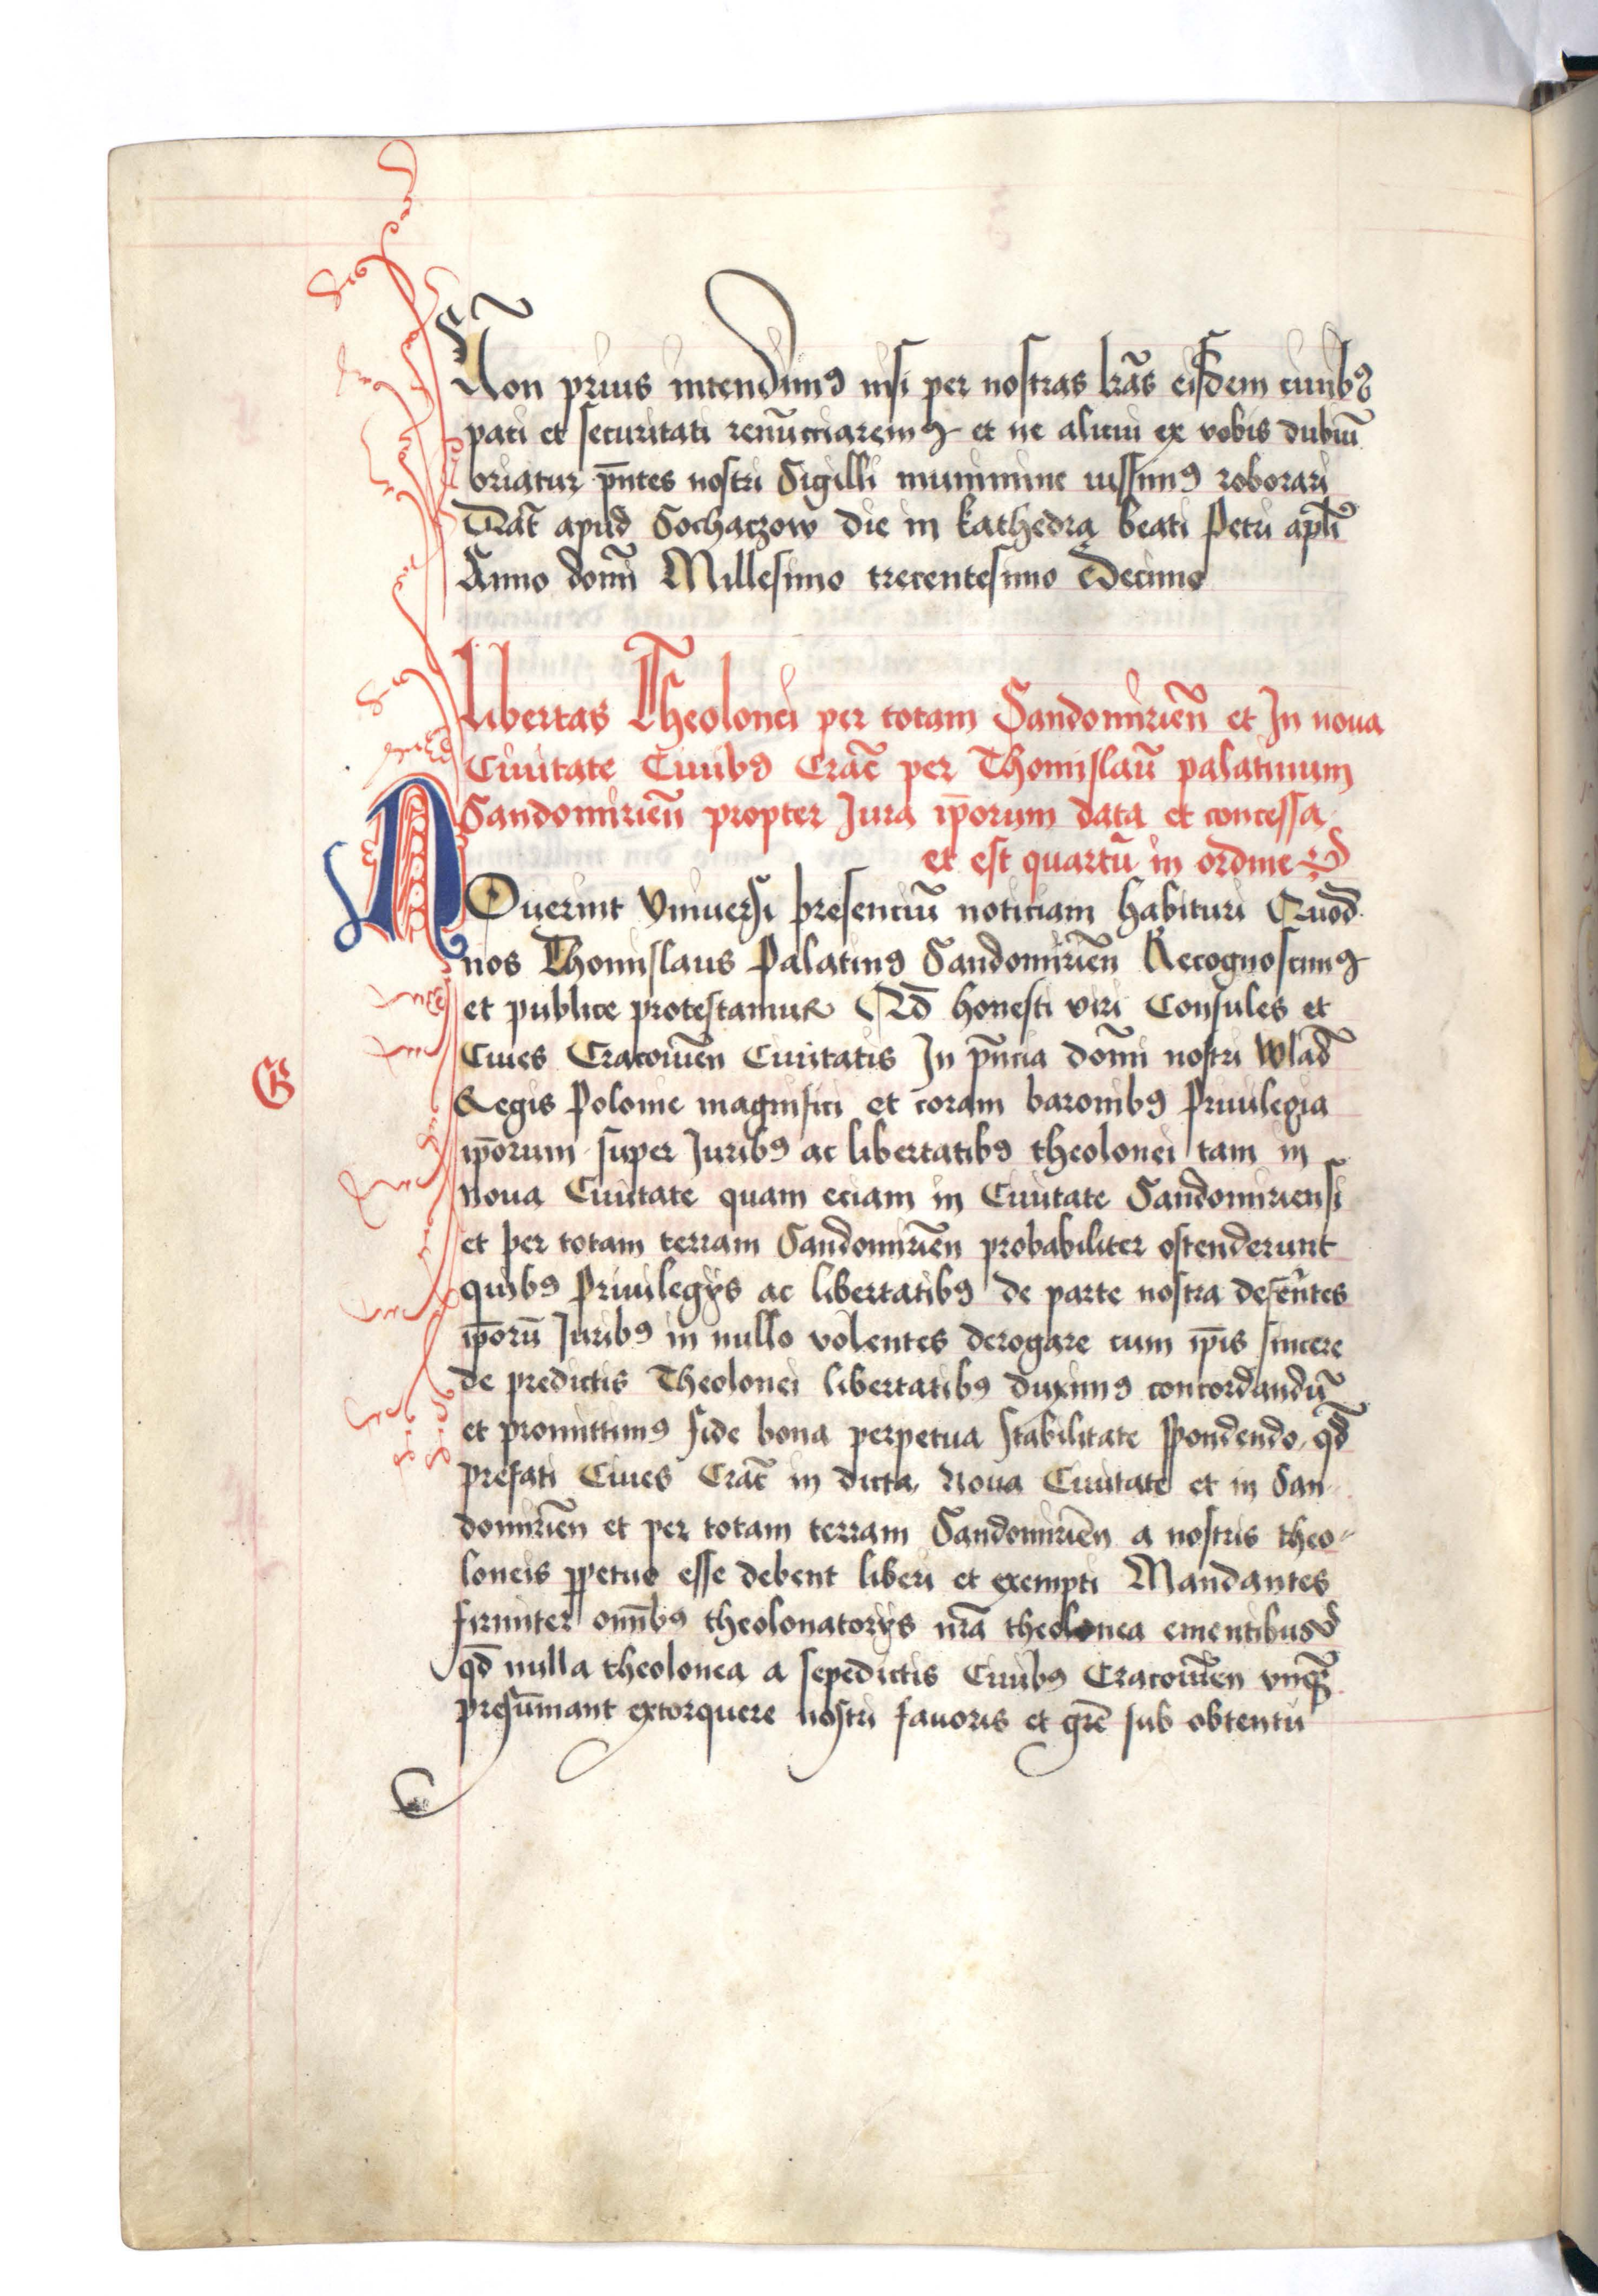 Non prius intendimꝰ nisi per nostras lrãs eisdem ciuibꝰ
paci et securitati renũcciaremꝰ et ne alicui ex vobis dubiũ
oriatur p̄ntes nostri Sigilli munimine iussimꝰ roborari
Dat̃ apud Sochaczow die in kathedra beati Petri apłi
Anno domĩ Millesimo trecentesimo Decimo
Libertas Theolonei per totam Sandomirień et In noua
Ciuitate Ciuibꝰ Crac̃ per Thomislaũ palatinum
Sandomirień propter Jura ip̄orum data et concessa
et est quartũ in ordine
NOuerint Vniuersi presenciũ noticiam habituri Quod
nos Thomislaus Palatinꝰ Sandomirień Recognoscimꝰ
et publice protestamur Qđ honesti viri Consules et
Ciues Cracouień Ciuitatis In p̄ncia domĩ nostri Wlad̃
Regis Polonie magnifici et coram baronibꝰ Priuilegia
ip̄orum super Juribꝰ ac libertatibꝰ theolonei tam in
noua Ciuitate quam eciam in Ciuitate Sandomiriensi
et per totam terram Sandomirień probabiliter ostenderunt
quibꝰ Priuilegijs ac libertatibꝰ de parte nostra defeñtes
ip̄orũ Juribꝰ in nullo volentes derogare cum ip̄is sincere
de predictis Theolonei libertatibꝰ duximꝰ concordandũ
et promittimꝰ fide bona perpetua stabilitate spondendo, qđ
prefati Ciues Crac̃ in dicta Noua Ciuitate et in San-
domirień et per totam terram Sandomirień a nostris theo-
loneis ꝑpetuo esse debent liberi et exempti Mandantes
firmiter om̃ibꝰ theolonatorijs nrã theolonea ementibus
qđ nulla theolonea a sepedictis Ciuibꝰ Cracouień vnqꝫ
presũmant extorquere nostri fauoris et grẽ sub obtentu